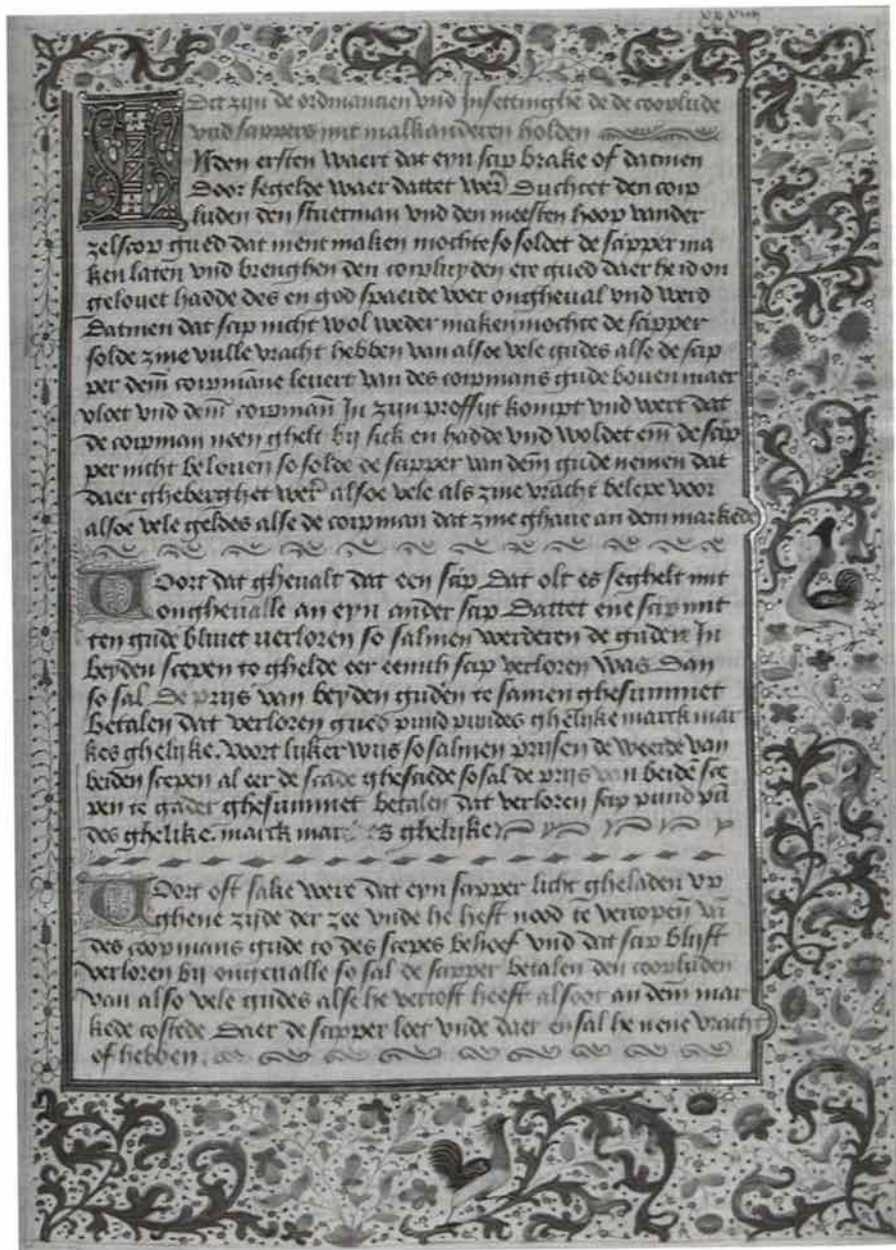 Dit zijn de ordinancien vnd Insettinghē de de cooplude
vnd scippers mit malkanderen holden
INden ersten waert dat eyn scip brake of datmen
Door segelde waer dattet wer̄ Duchtet den coip
luden den stuerman vnd den meesten hoop vander
zelscop gued dat ment maken mochte so soldet de scipper ma
ken laten vnd brenghen den coipluyden ere gued daer he id on
gelouet hadde des en god spaerde voer ongheual vnd werd
Datmen dat scip nicht wol weder maken mochte de scipper
solde zine vulle vracht hebben van alsoe vele gudes alse de scip
per dem̄ coipmāne leuert van des coipmans gude bouen maer
vloet vnd dem̄ coipman̄ In zijn proffijt kompt vnd wert dat
de coipman neen ghelt bij sick en hadde vnd woldet em̄ de scip
per nicht belouen so solde de scipper van dem̄ gude nemen dat
daer gheberghet wer̄ alsoe vele als zine vracht belepe voor
alsoe vele geldes alse de coipman dat zine ghaue an dem markede
Voort dat gheualt dat een scip Dat olt es seghelt mit
ongheualle an eyn ander scip Dattet ene scip mit
ten gude bliuet verloren so salmen werderen de guden In
beyden scepen to ghelde eer eenich scip verloren was Dan
so sal De prijs van beyden guden te samen ghesummet
betalen dat verloren gued pund pundes ghelijke marck mar
kes ghelijke. voort lijker wijs so salmen prijsen de weerde van
beiden scepen al eer de scade ghesciede so sal de prijs van beidē sce
pen te gader ghesummet betalen dat verloren scip pund pū
des ghelike. marck mar es ghelijke
Voort oft sake were dat eyn scipper licht gheladen vp
ghene zijde der zee vnde he heft nood te vercopen̄ vā
des coopmans gude to des scepes behoef vnd dat scip blijft
verloren bij ongeualle so sal de scipper betalen den cooplüden
van also vele gudes alse he vercoft heeft alsoot an dem̄ mar
kede costede Daer de scipper loet vnde daer en sal he nene vracht
of hebben.